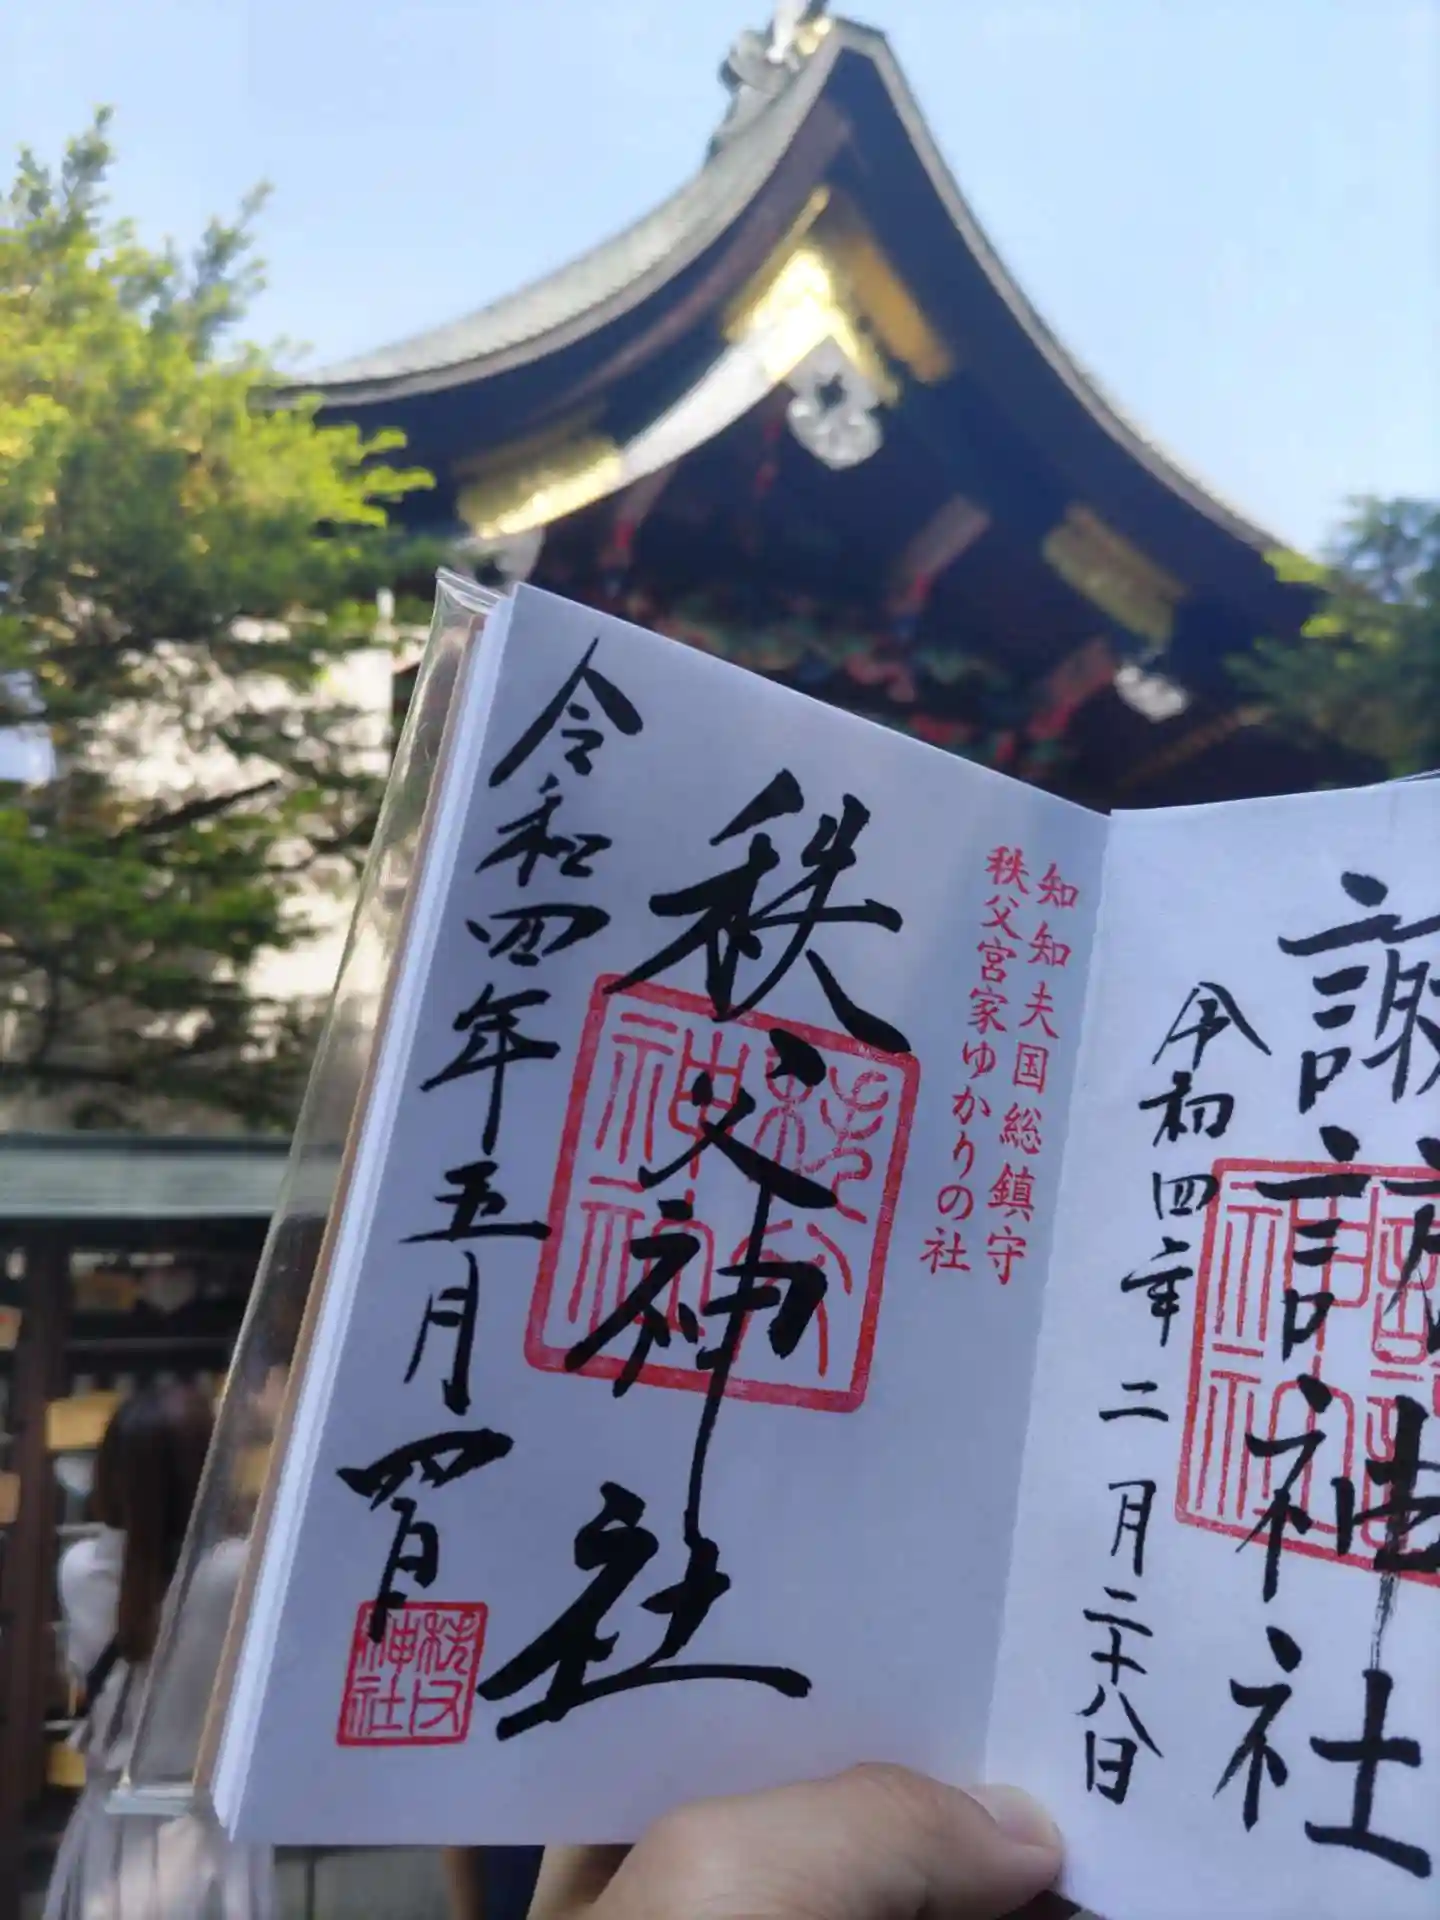 諏訪神社
令和四年二月二十八日
知知夫国総鎮守
秩父宮家ゆかりの社
秩父神社
秩父神社
令和四年五月四日
秩父神社